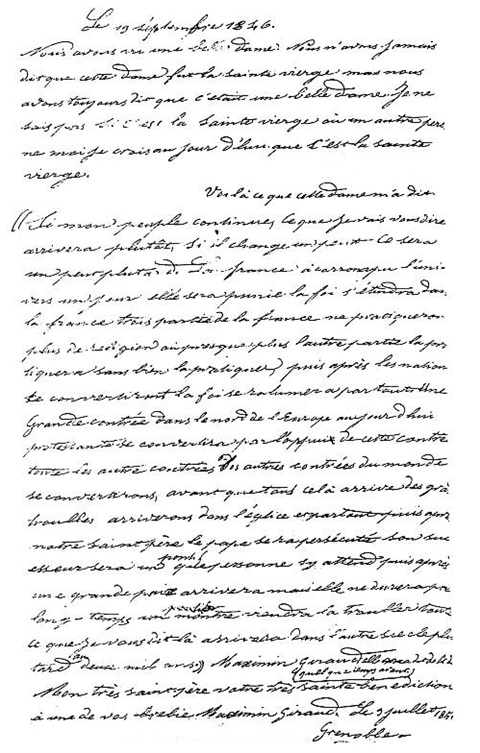 Le 19 septembre 1846.
Nous avons vu une belle dame. Nous n'avons jamais
dit que cette dame fut la sainte vierge mais nous
avons toujours dit que c'était une belle dame. Je ne
sais pas si c'est la Sainte vierge ou un autre per
ne moi je crois aujourd'hui que c'est la sainte
vierge.
Voilà ce que cette dame m'a dit
"Si mon peuple continue, ce que je vais vous dire
arrivera plutôt, si il change un peu ce sera
un peu plutard. La france à corrompu l'uni
vers un jour elle sera punie la foi s'éteindra dan
la france trois partie de la france ne pratiqueron
plus de religion ou presque plus l'autre partie la pra
tiquera sans bien la pratiquer, puis après les nation
se convertiront la foi se ralumera partout Une
grande contrée dans le nord de l'Europe aujourd'hui
protestante se convertira par l'appuie de cette contré
toute les autre contrées du monde
se convertirons, avant que tous celà arrive des grd
troubles arriverons dans l'église et partout puis après
notre saint père le pape sera persécuté son suc
esseur sera un pontif que personne s'y attend puis après
une grande paix arrivera mais elle ne durera pas
long-temps un monstre viendra la troubler tout
ce que je vous dit là arrivera dans l'autre siecle plu
tard deux mil ans" Maximin Giraud
(quelque temps avant)
Mon très saint père votre très sainte benediction
à une de vos brebis. Maximin Giraud. Le 3 juillet 1851.
Grenoble